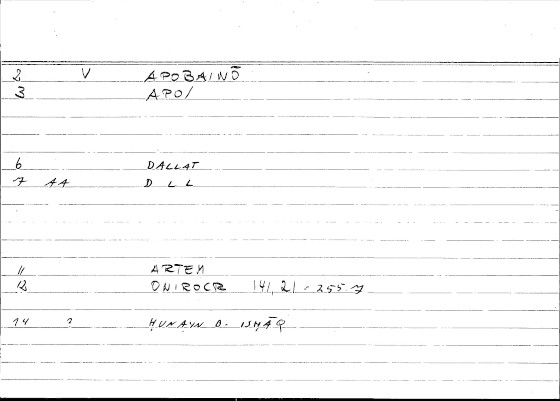 2 V APOBAINŌ
3 APO/
6 DALLAT
7 AA D L L
11 ARTEM
12 ONIROCR 141,21 = 255 7
14 1 ḤUNAYN B. ISḤĀQ